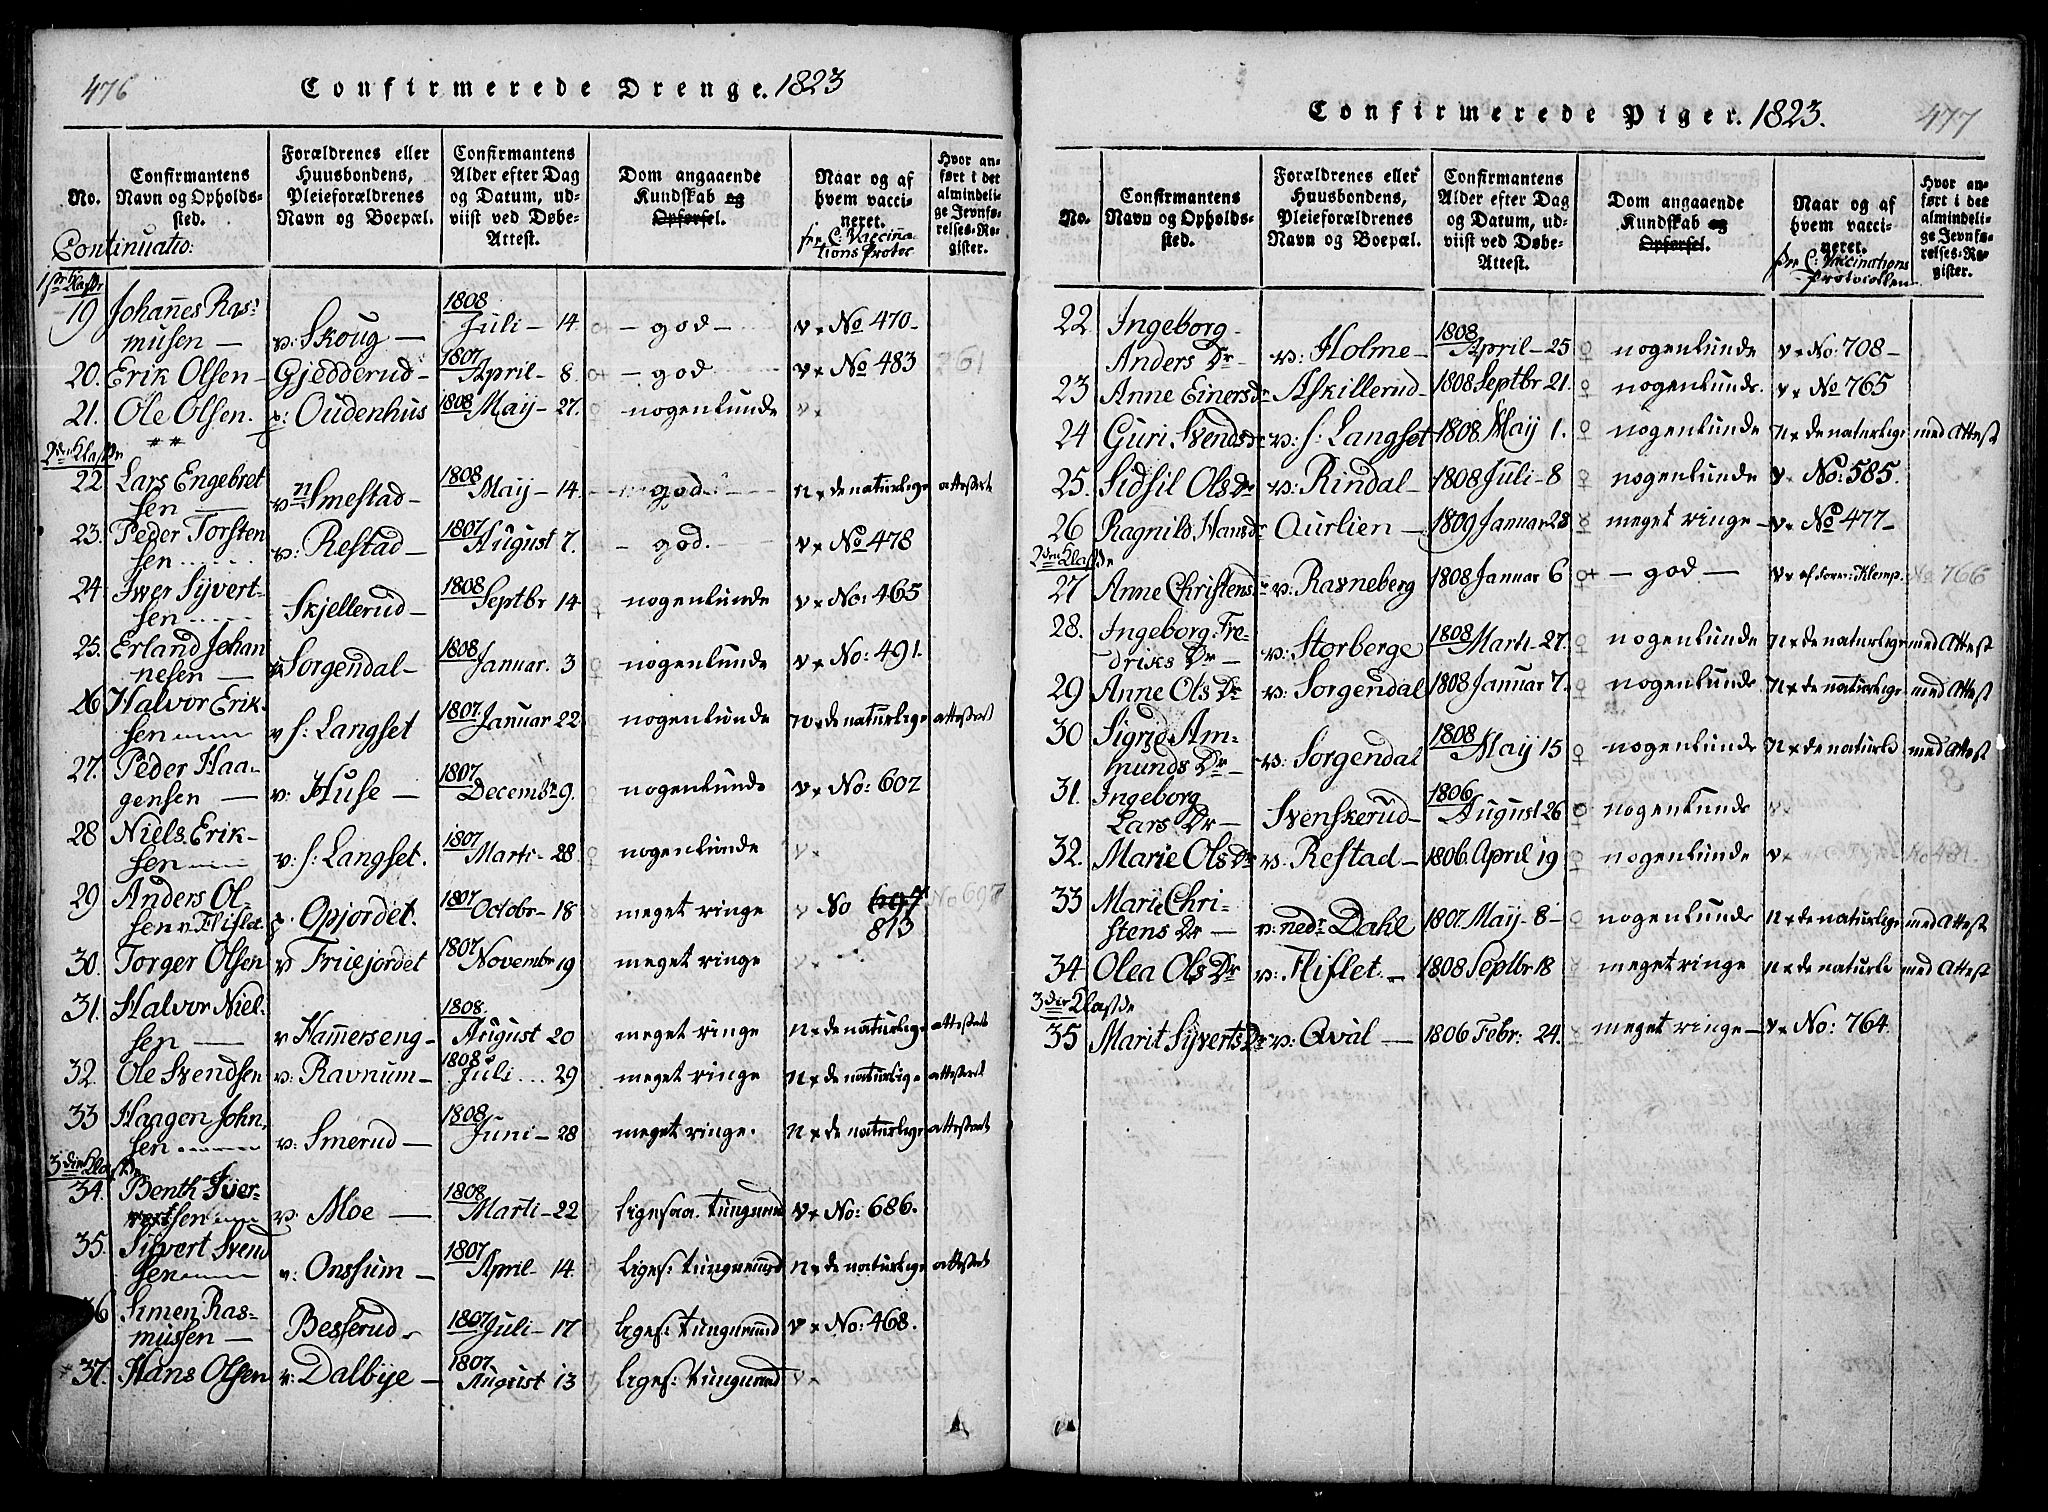 476
Confirmerede Drenge. 1823
No.
Confirmantens Navn og Opholdssted.
Forældrenes eller Huusbondens, Pleieforældrenes Navn og Boepæl.
Confirmantens Alder efter Dag og Datum, udviist ved Døbe-Attest.
Dom angaaende Kundskab og Opførsel.
Naar og af hvem vaccineret.
pr C. Vaccinations Protoc
Hvor anført i det almindelige Jevnførelses-Register.
Continuatio:
1ste Klasse
19 Johannes Ras- v: Skoug — 1808 Juli — 14 — god — v × No 470 —
musen —
20. Erik Olsen — Gjedderud — 1807 April — 8 — god v × No 483 261
21. Ole Olsen. p: Oudenhus 1808 Maij — 27. nogenlunde v ×
2den Klasse
22 Lars Engebret v n Smestad — 1808 Maij — 14 — god — n × de naturlige attesteret
sen —
23. Peder Torsten v: Restad — 1807 August 7. — god. — v × No 478
sen
24 Iver Syvert- Skjellerud — 1808 Septbr 14 nogenlunde v × No: 465
sen
25. Erland Johan Sorgendal — 1808 Januar. 3 nogenlunde v × No: 491.
nesen —
26 Halvor Erik- v s: Langset 1807 Januar 22 nogenlunde n × de naturlige attesteret
sen
27. Peder Haa- v: Huse — 1807 Decembr 9. nogenlunde v × No: 602
gensen —
28 Niels Erik- v: s: Langset. 1807 Marti — 28 nogenlunde v ×
sen
29 Anders Ol- p. Opjordet. 1807 Octobr — 18 meget ringe v No 697 No 697
sen v. Flislet 813
30. Torger Olsen v Friiejordet 1807 Novembr 19 meget ringe v ×
31. Halvor Niel- v Hammerseng — 1808 August 20 meget ringe n × de naturlige attesteret
sen —
32. Ole Svendsen v: Ravnum — 1808 Juli ... 29 meget ringe n × de naturlige attesteret
33 Haagen John- v: Smerud — 1808 Juni — 28 meget ringe. n × de naturlige attesteret
sen
3die Klasse
34. Benth Syver- v: Moe — 1808 Marti — 22 ligesaa tungnemd v × No: 686.
sen
35. Sifvert Svend v: Onssum — 1807 April — 14 liges: tungnemd n × de naturlige attesteret
sen
36 Simen Ras- Besserud — 1807 Juli — 17 liges: tungnemd v × No: 468.
mussen —
37. Hans Olsen v: Dalbye — 1807 August 13 liges: tungnemd v ×
Confirmerede Piger. 1823.
477
No.
Confirmantens Navn og Opholdssted.
Forældrenes eller Huusbondens, Pleieforældrenes Navn og Boepæl.
Confirmantens Alder efter Dag og Datum, udviist ved Døbe-Attest.
Dom angaaende Kundskab og Opførsel.
Naar og af hvem vaccineret.
pr C: Vaccinations Protocollen
Hvor anført i det almindelige Jevnførelses-Register.
22 Ingeborg v: Holme — 1808 April — 25 nogenlunde v × No: 708 —
Anders Dr
23 Anne Einersdr Askillerud — 1808 Septbr 21. nogenlunde. v × No 765
24 Guri Svendsdr v: s: Langset 1808 Maij 1. nogenlunde n × de naturlige med Attest
25. Sidsil Ols Dr v: Rindal — 1808 Juli — 8 nogenlunde v × No: 585.
26 Ragnild Hansdr Aurlien — 1809 Januar 28 meget ringe — v × No 477 —
2den Klasse
27 Anne Christensdr v: Ravneberg 1808 Januar 6 — god — v × af Klemp. No 766
28. Ingeborg Fre- v: Storberge 1808 Marti — 27. nogenlunde n × de naturlige med Attest
driks Dr —
29 Anne Ols Dr v: Sorgendal 1808 Januar 7. nogenlunde n × de naturlige med Attest
30 Sigrid Am- v: Sorgendal 1808 Maij 15 nogenlunde n × de naturli med Attest
munds Dr —
31. Ingeborg Svenskerud — 1806 August 26 nogenlunde v ×
Lars Dr —
32. Marie Ols Dr v: Restad — 1806. April 19 nogenlunde v ×
33 Marie Chri- v: nedr Dahl 1807. Maij — 8 — nogenlunde n × de naturlige med Attest
stens Dr —
34. Olea Ols Dr v: Flislet — 1808 Septbr 18 meget ringe n × de naturli med Attest
3die Klasse
35 Marit Syverts Dr v: Qval — 1806 Febr: 24. meget ringe — v × No: 764.